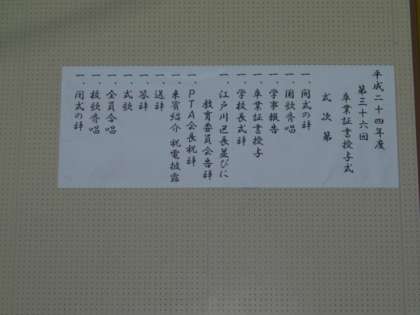 平成二十四年度
第三十六回
卒業証書授与式
式次第
一、開式の辞
一、国歌斉唱
一、学事報告
一、卒業証書授与
一、学校長式辞
一、江戸川区長並びに
教育委員会告辞
一、PTA会長祝辞
一、来賓紹介 祝電披露
一、送辞
一、答辞
一、式歌
一、全員合唱
一、校歌斉唱
一、閉式の辞